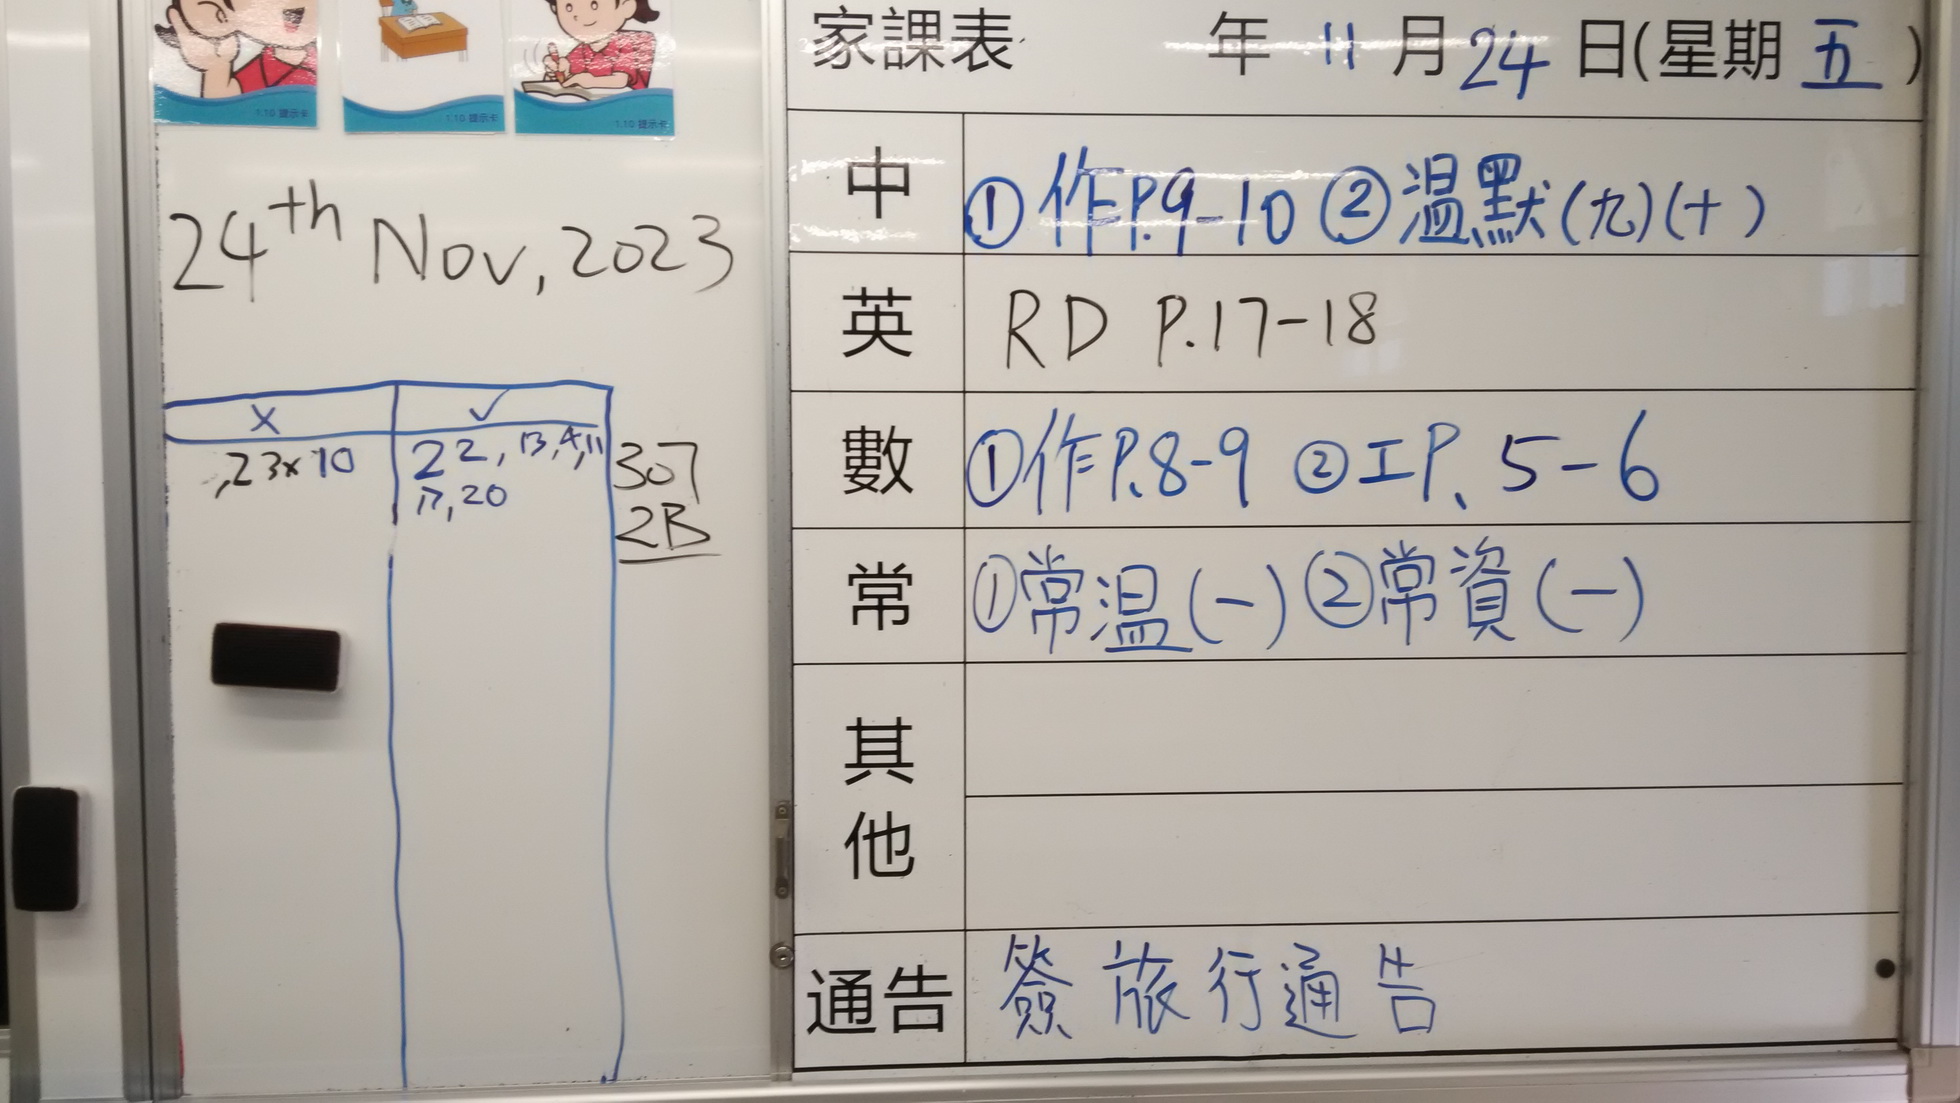 1.10 提示卡
1.10 提示卡
1.10 提示卡
24th Nov, 2023
× ✓
,23×10 22, 13,4,11
17,20
307
2B
家課表 年 11 月 24 日(星期 五 )
中 ①作P.9-10 ②溫默(九)(十)
英 RD P.17-18
數 ①作P.8-9 ②工P. 5-6
常 ①常溫(一) ②常資(一)
其他
通告 簽旅行通告